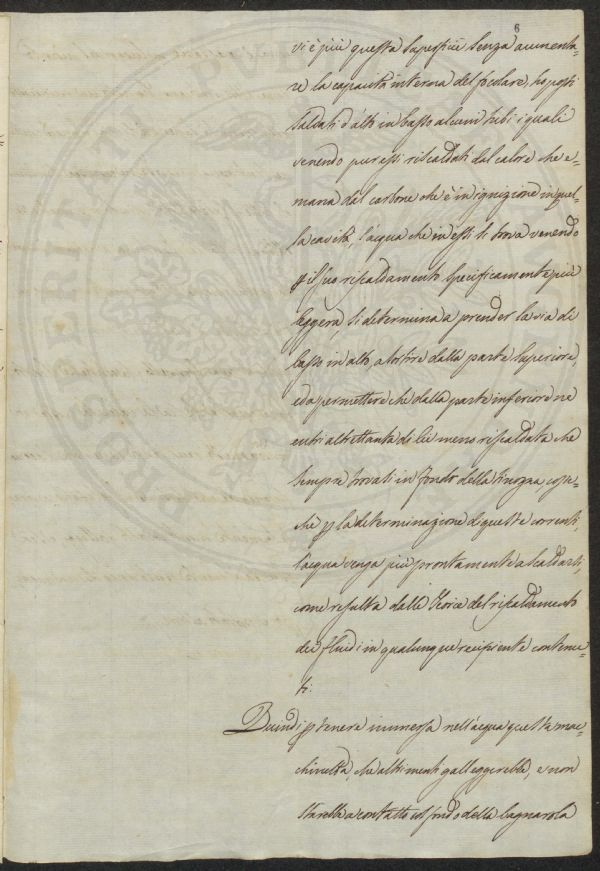 6
vi è più questa superficie senza aumenta-
re la capacità interna del focolare, ho posti
saldati d'alto in basso alcuni tubi, i quali
venendo pur essi riscaldati dal calore che e-
mana dal carbone che è in ignizione in quel-
la cavità, l'acqua che in essi si trova venendo
p il suo riscaldamento specificamente più
leggera, si determina a prender la via di
basso in alto, a sortire dalla parte superiore,
ed a permettere che dalla parte inferiore ne
entri altrettanta di lei meno riscaldata che
sempre trovasi in fondo della tinozza, cosic-
che p la determinazione di queste correnti,
l'acqua venga più prontamente a scaldarsi,
come resulta dalle teorie del riscaldamento
dei fluidi in qualunque recipiente contenu-
ti.
Quindi p tenere immersa nell'acqua questa mac-
chinetta, che altrimenti galleggerebbe, e non
starebbe a contatto col fondo della bagnarola
PROSPERITATI